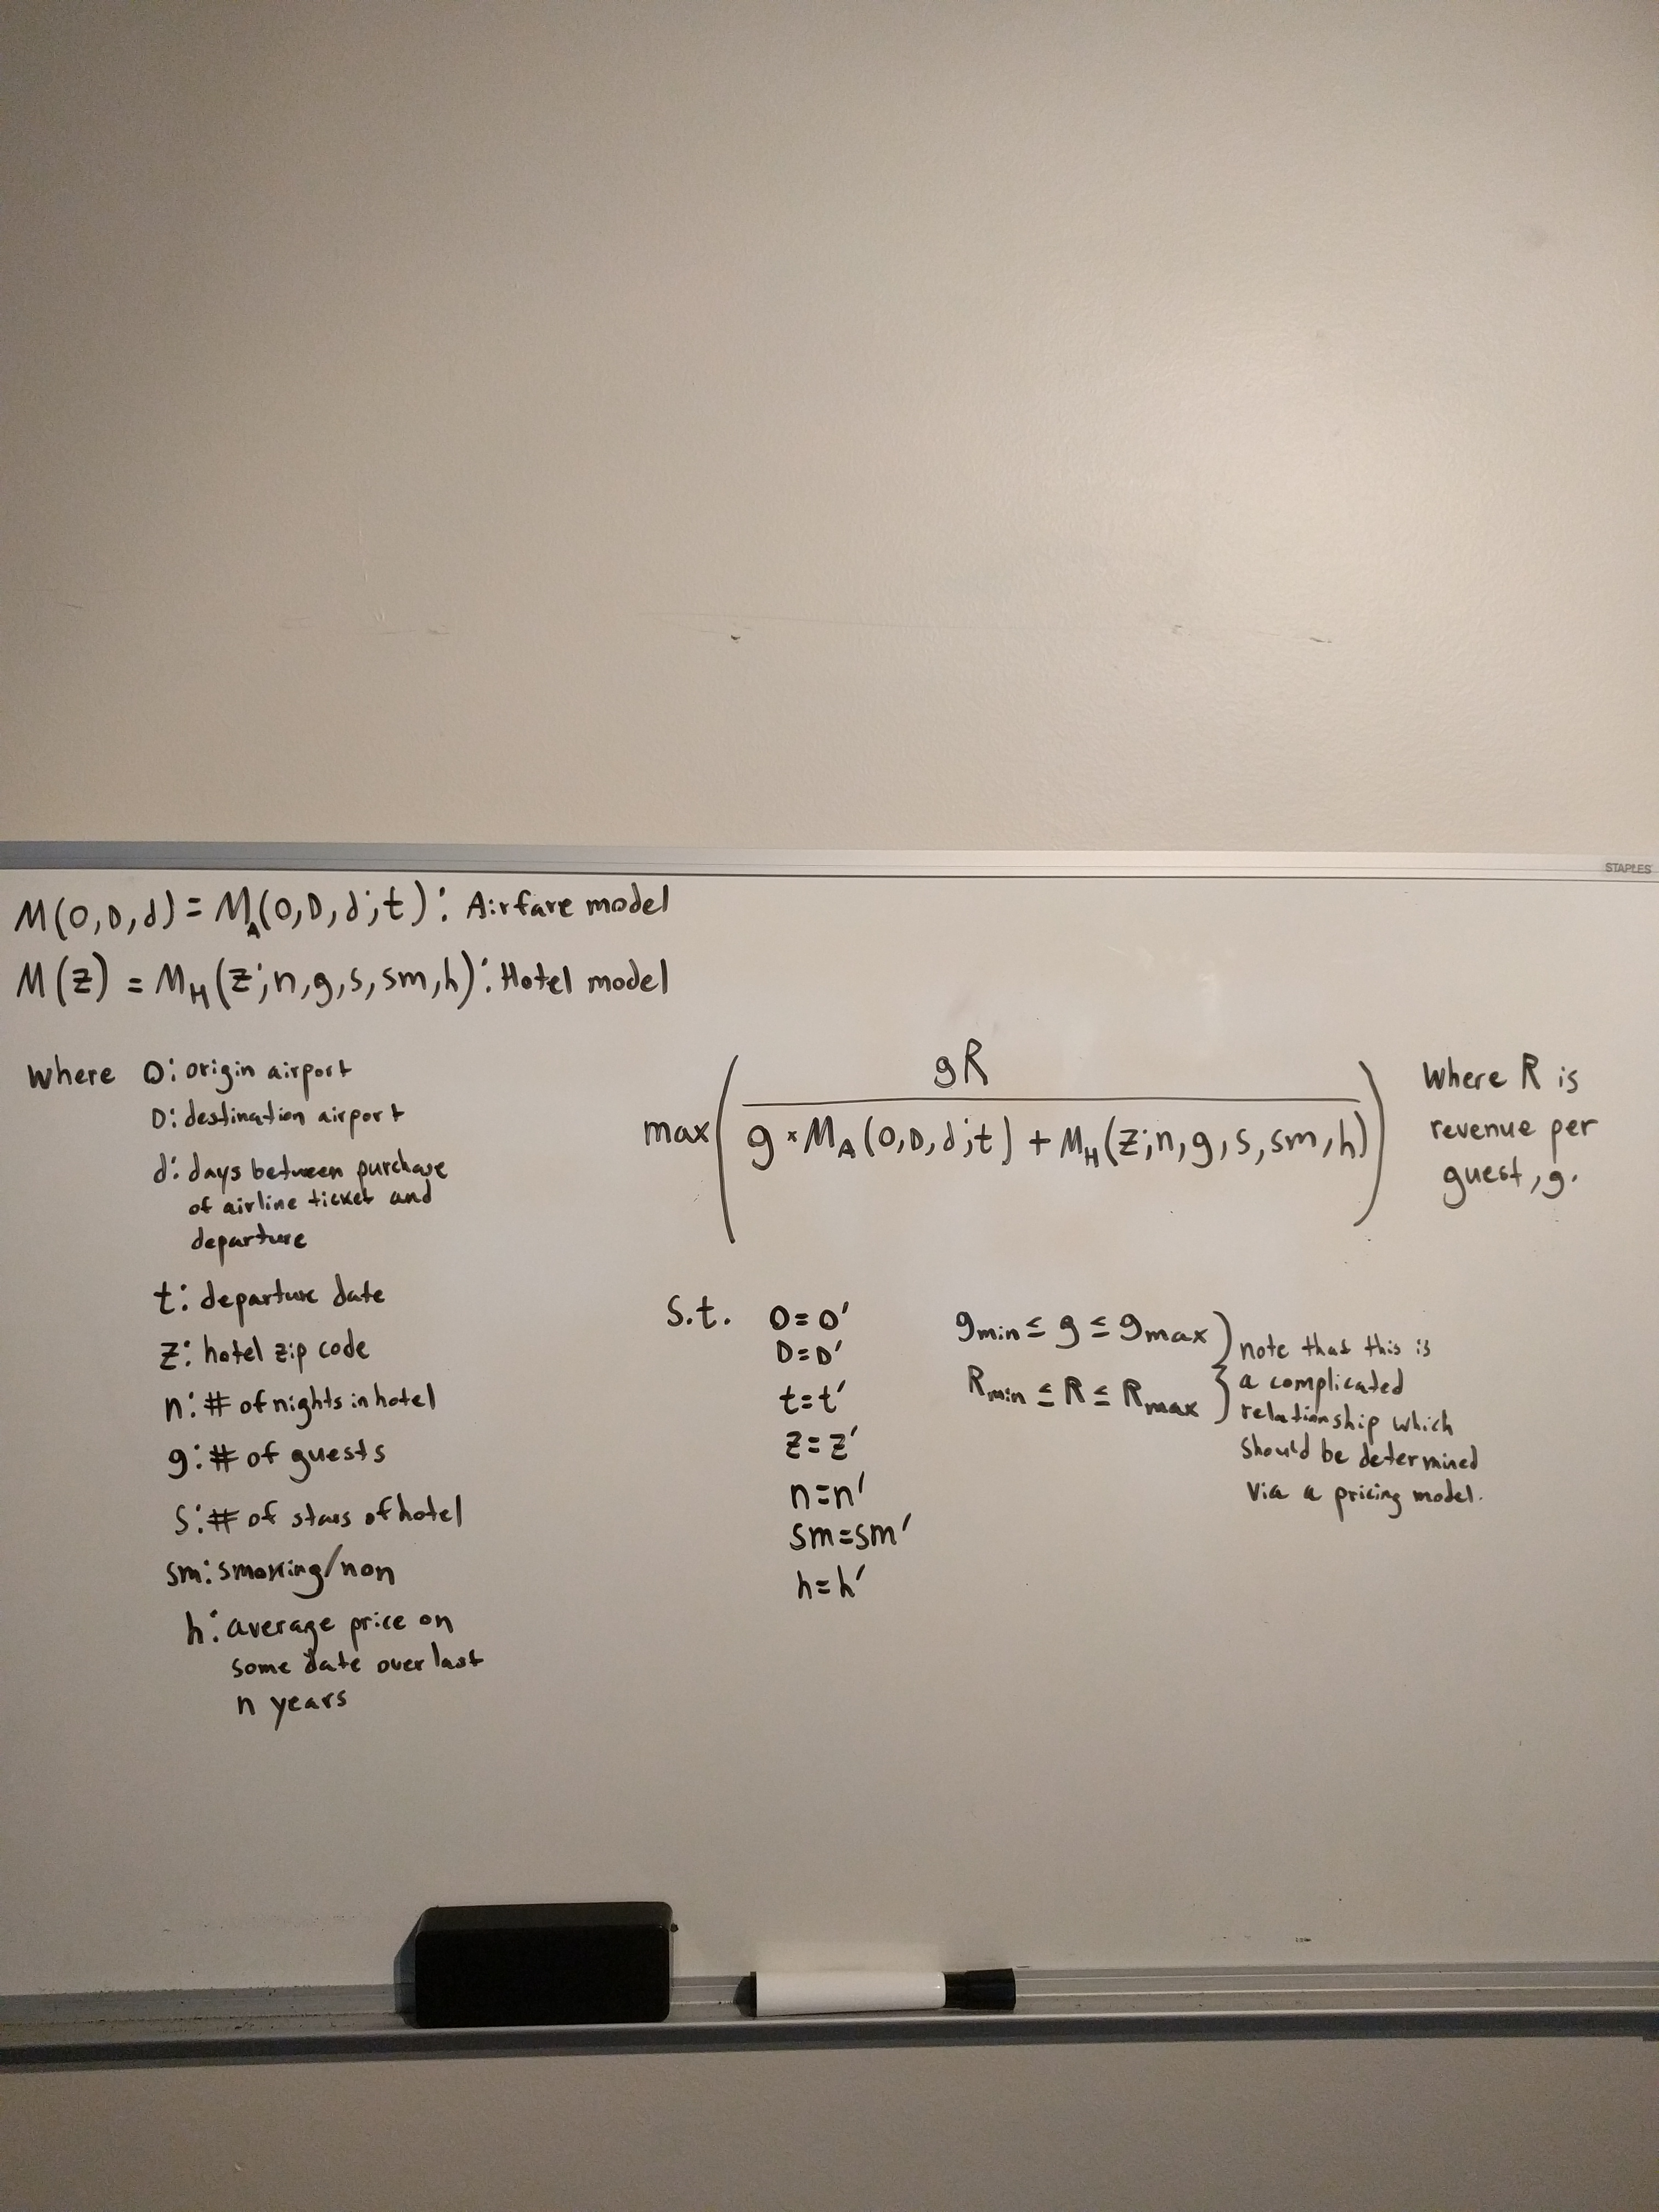 STAPLES
M(O,D,d) = M_A(O,D,d;t): Airfare model
M(z) = M_H(z;n,g,s,sm,h): Hotel model
where O: origin airport
D: destination airport
d: days between purchase
of airline ticket and
departure
t: departure date
z: hotel zip code
n: # of nights in hotel
g: # of guests
s: # of stars of hotel
sm: smoking/non
h: average price on
some date over last
n years
gR
max( g * M_A(O,D,d;t) + M_H(z;n,g,s,sm,h) )
Where R is
revenue per
guest, g.
s.t. O=O'
D=D'
t=t'
z=z'
n=n'
sm=sm'
h=h'
g_min ≤ g ≤ g_max
R_min ≤ R ≤ R_max
note that this is
a complicated
relationship which
should be determined
via a pricing model.